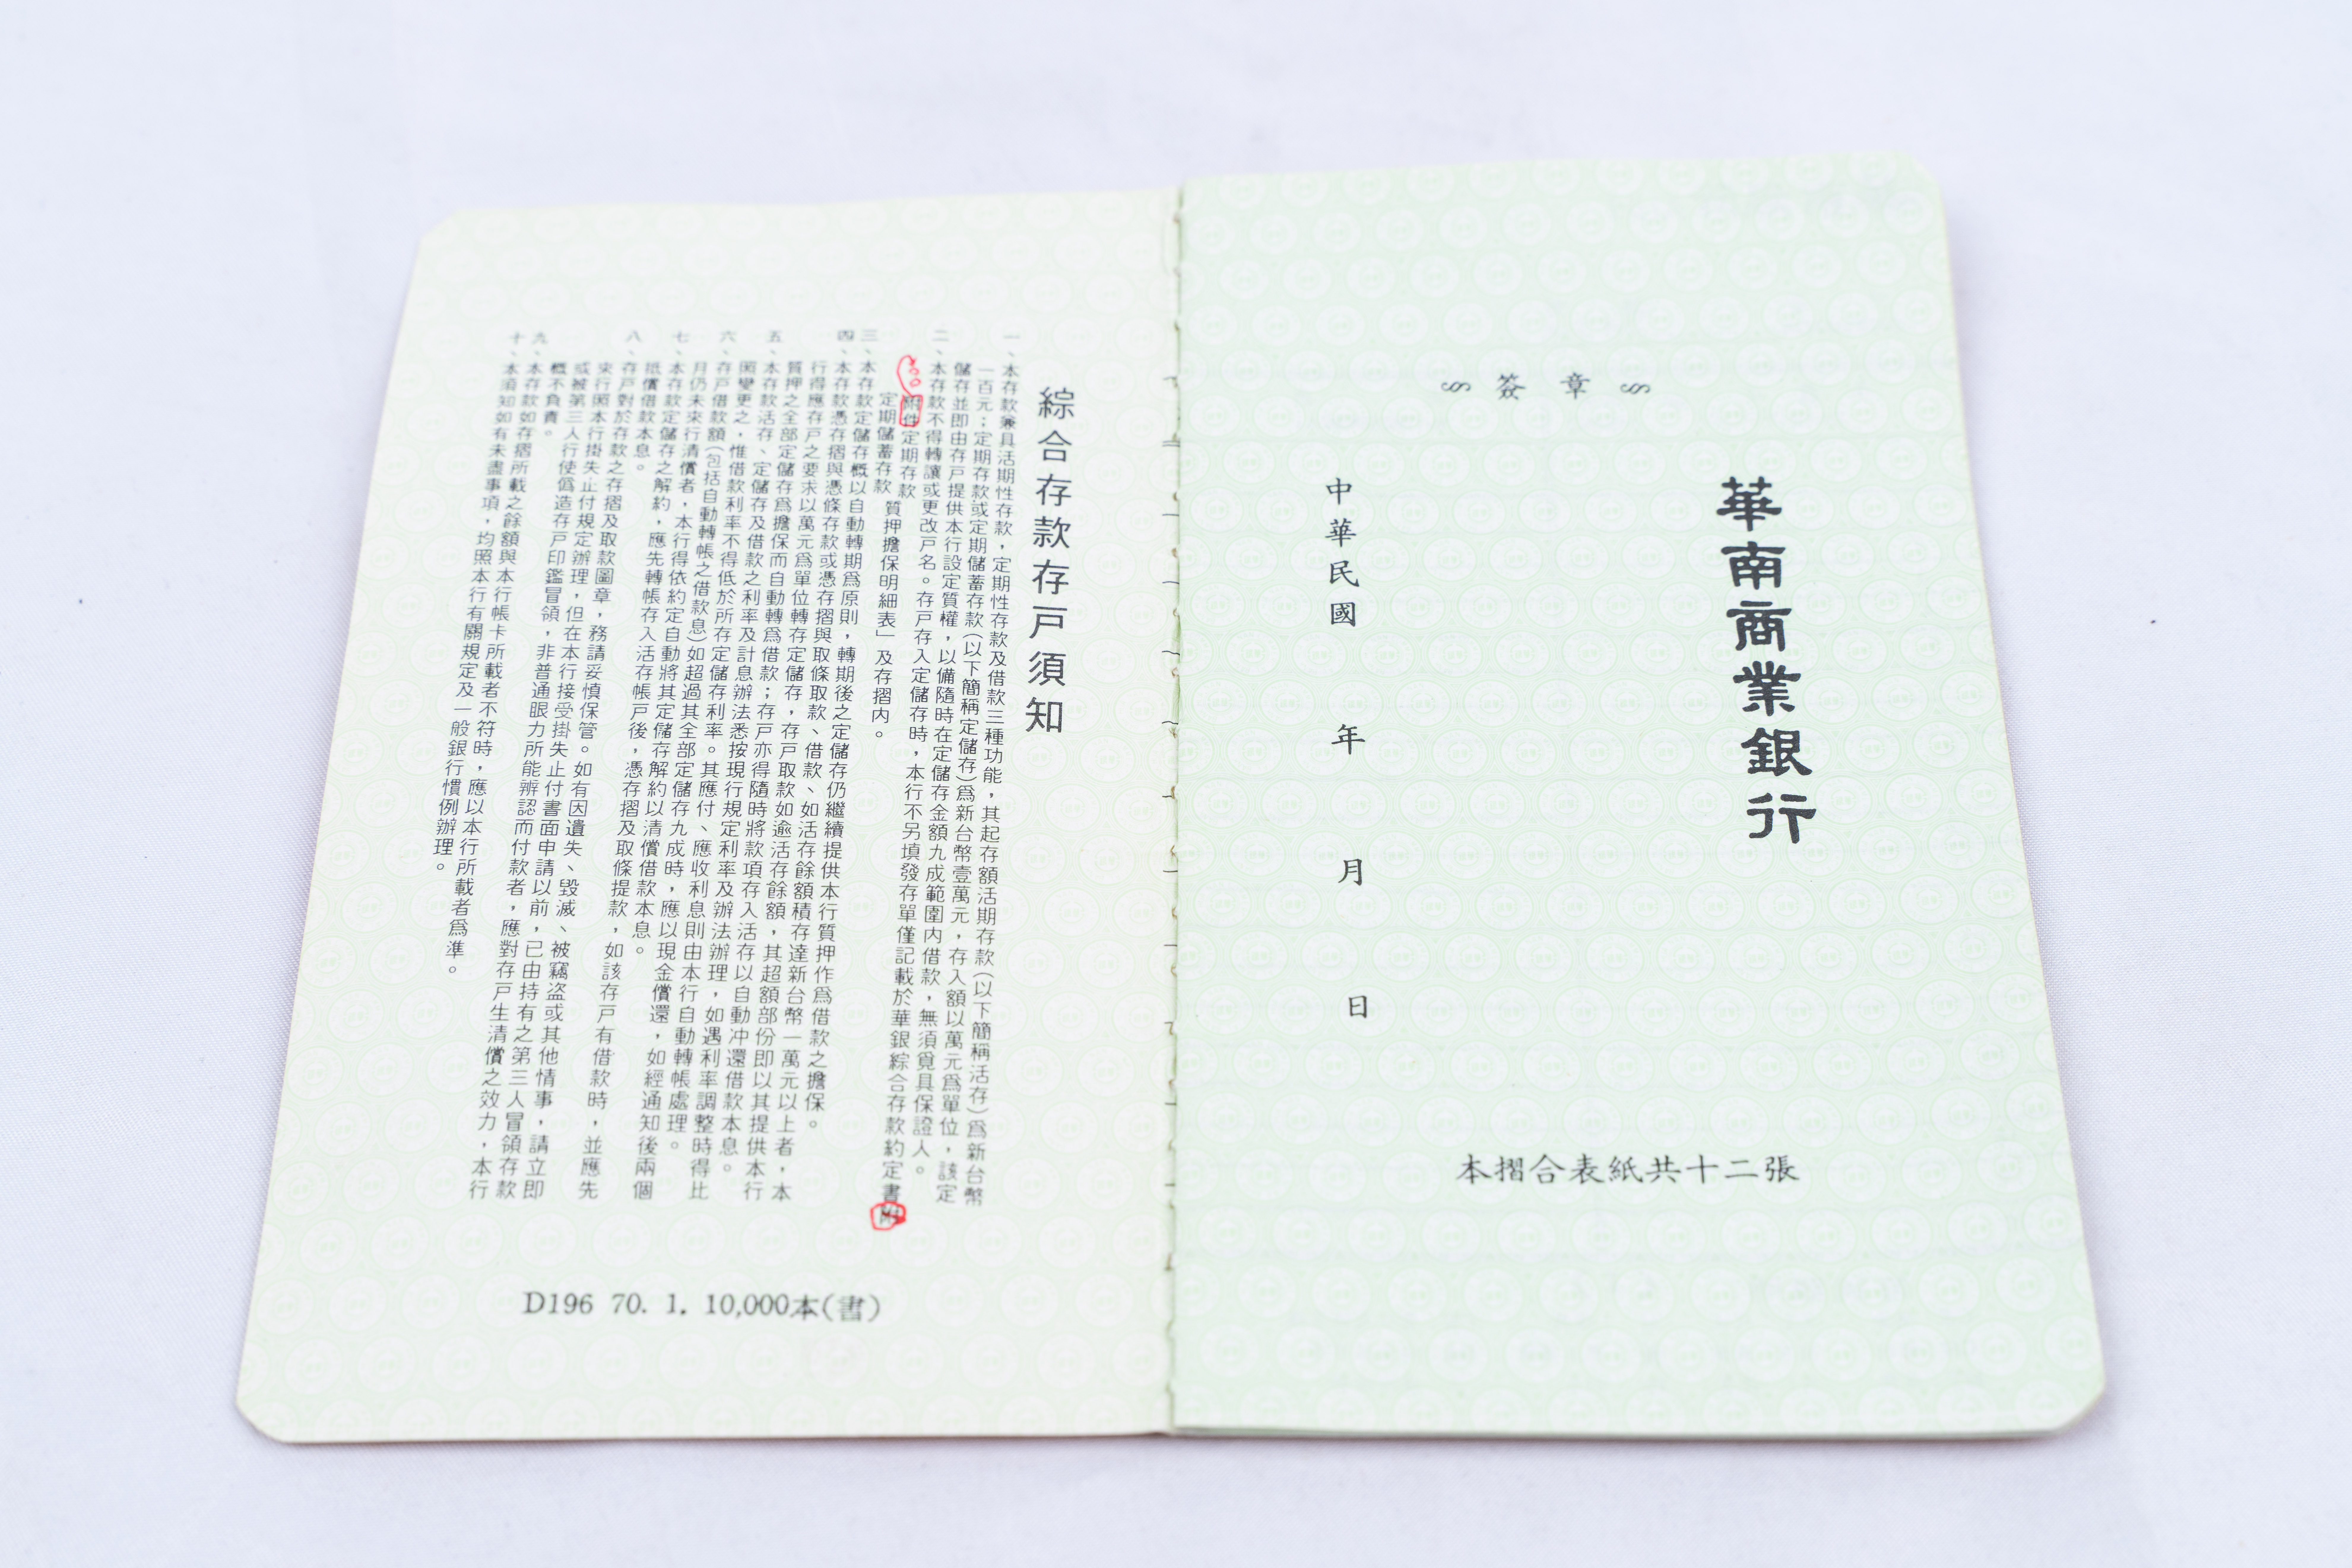 華南商業銀行
簽章
中華民國　年　月　日
本摺合表紙共十二張
綜合存款存戶須知
一、本存款兼具活期性存款，定期性存款及借款三種功能，其起存額活期存款（以下簡稱活存）爲新台幣
一百元；定期存款或定期儲蓄存款（以下簡稱定儲存）爲新台幣壹萬元，存入額以萬元爲單位，該定
儲存並即由存戶提供本行設定質權，以備隨時在定儲存金額九成範圍内借款，無須覓具保證人。
二、本存款不得轉讓或更改戶名。存戶存入定儲存時，本行不另填發存單僅記載於華銀綜合存款約定書附
附件定期存款
定期儲蓄存款
質押擔保明細表」及存摺内。
三、本存款定儲存概以自動轉期爲原則，轉期後之定儲存仍繼續提供本行質押作爲借款之擔保。
四、本存款憑存摺與憑條存款或憑存摺與取條取款、借款、如活存餘額積存達新台幣一萬元以上者，本
行得應存戶之要求以萬元爲單位轉存定儲存，存戶取款如逾活存餘額，其超額部份即以其提供本行
質押之全部定儲存爲擔保而自動轉爲借款；存戶亦得隨時將款項存入活存以自動冲還借款本息。
五、本存款活存、定儲存及借款之利率及計息辦法悉按現行規定利率及辦法辦理，如遇利率調整時得比
照變更之，惟借款利率不得低於所存定儲存利率。其應付、應收利息則由本行自動轉帳處理。
六、存戶借款額（包括自動轉帳之借款息）如超過其全部定儲存九成時，應以現金償還，如經通知後兩個
月仍未來行清償者，本行得依約定自動將其定儲存解約以清償借款本息。
七、本存款定儲存之解約，應先轉帳存入活存帳戶後，憑存摺及取條提款，如該存戶有借款時，並應先
抵償借款本息。
八、存戶對於存款之存摺及取款圖章，務請妥慎保管。如有因遺失、毀滅、被竊盗或其他情事，請立即
來行照本行掛失止付規定辦理，但在本行接受掛失止付書面申請以前，已由持有之第三人冒領存款
或被第三人行使僞造存戶印鑑冒領，非普通眼力所能辨認而付款者，應對存戶生清償之效力，本行
概不負責。
九、本存款如存摺所載之餘額與本行帳卡所載者不符時，應以本行所載者爲準。
十、本須知如有未盡事項，均照本行有關規定及一般銀行慣例辦理。
D196 70. 1. 10,000本(書)